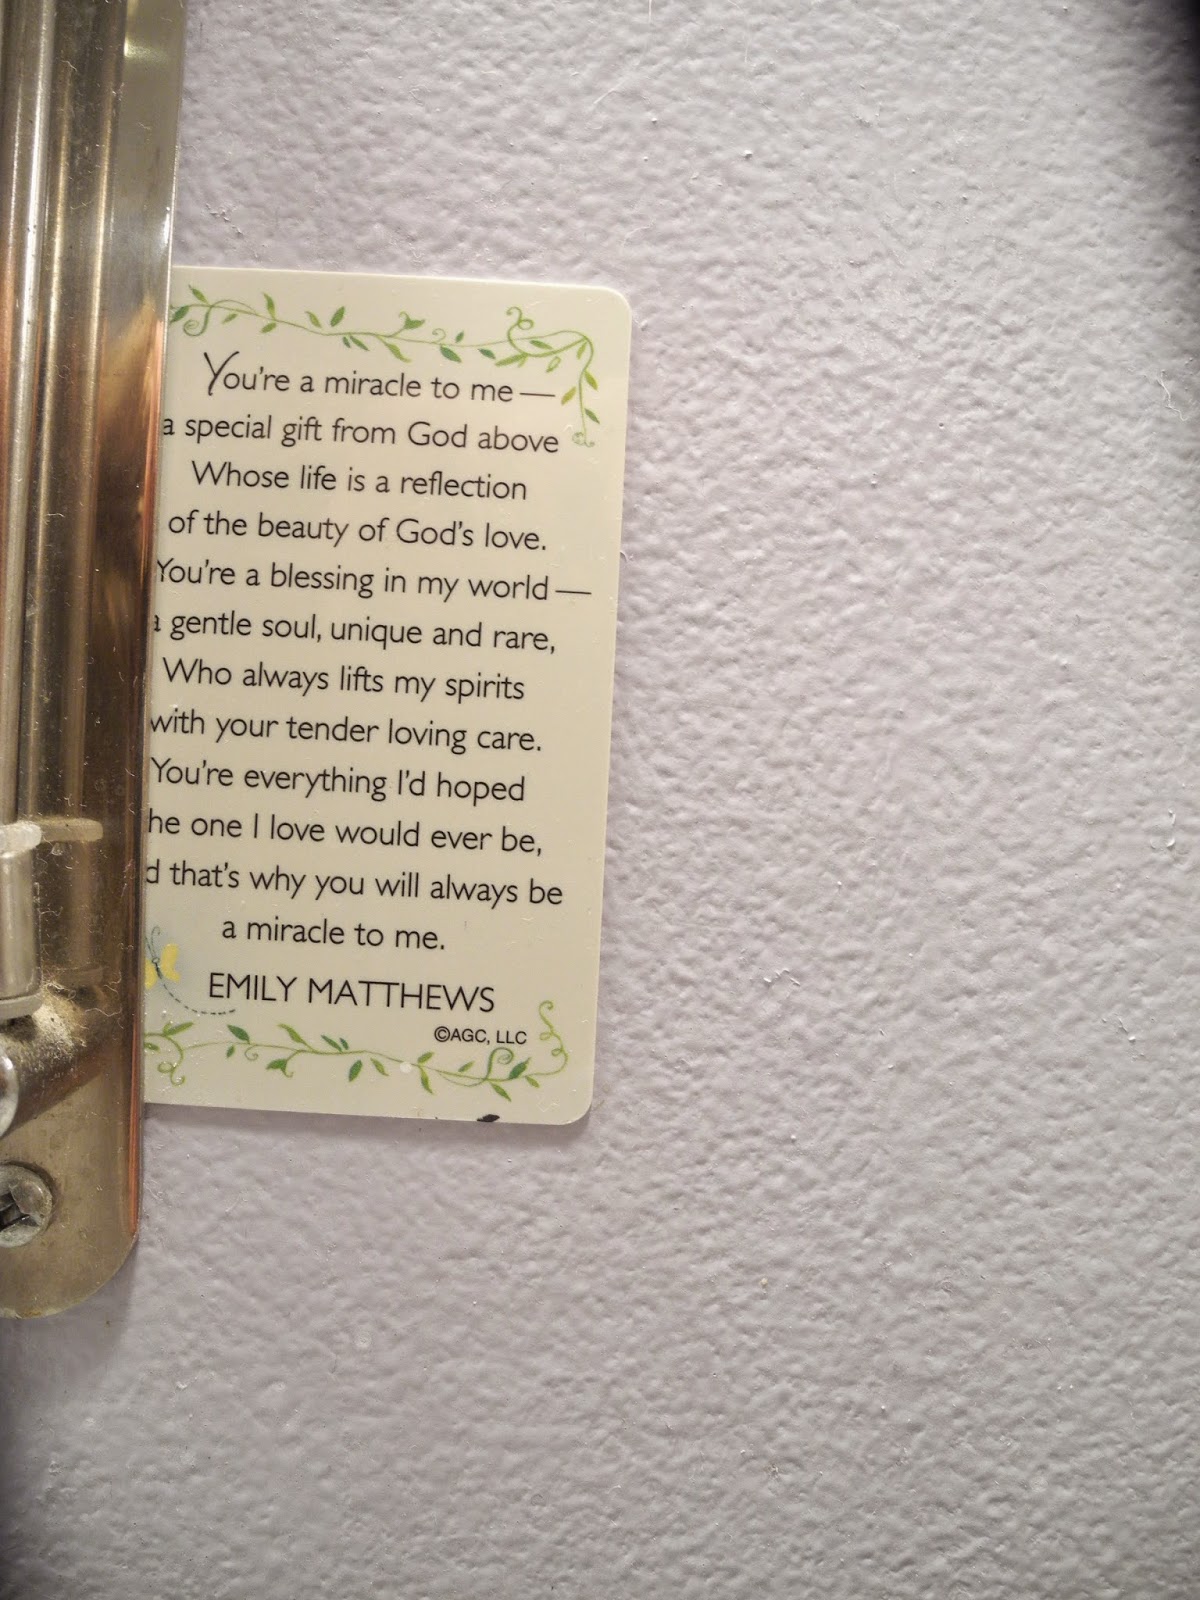 You're a miracle to me —
a special gift from God above
Whose life is a reflection
of the beauty of God's love.
You're a blessing in my world —
a gentle soul, unique and rare,
Who always lifts my spirits
with your tender loving care.
You're everything I'd hoped
he one I love would ever be,
d that's why you will always be
a miracle to me.
EMILY MATTHEWS
©AGC, LLC